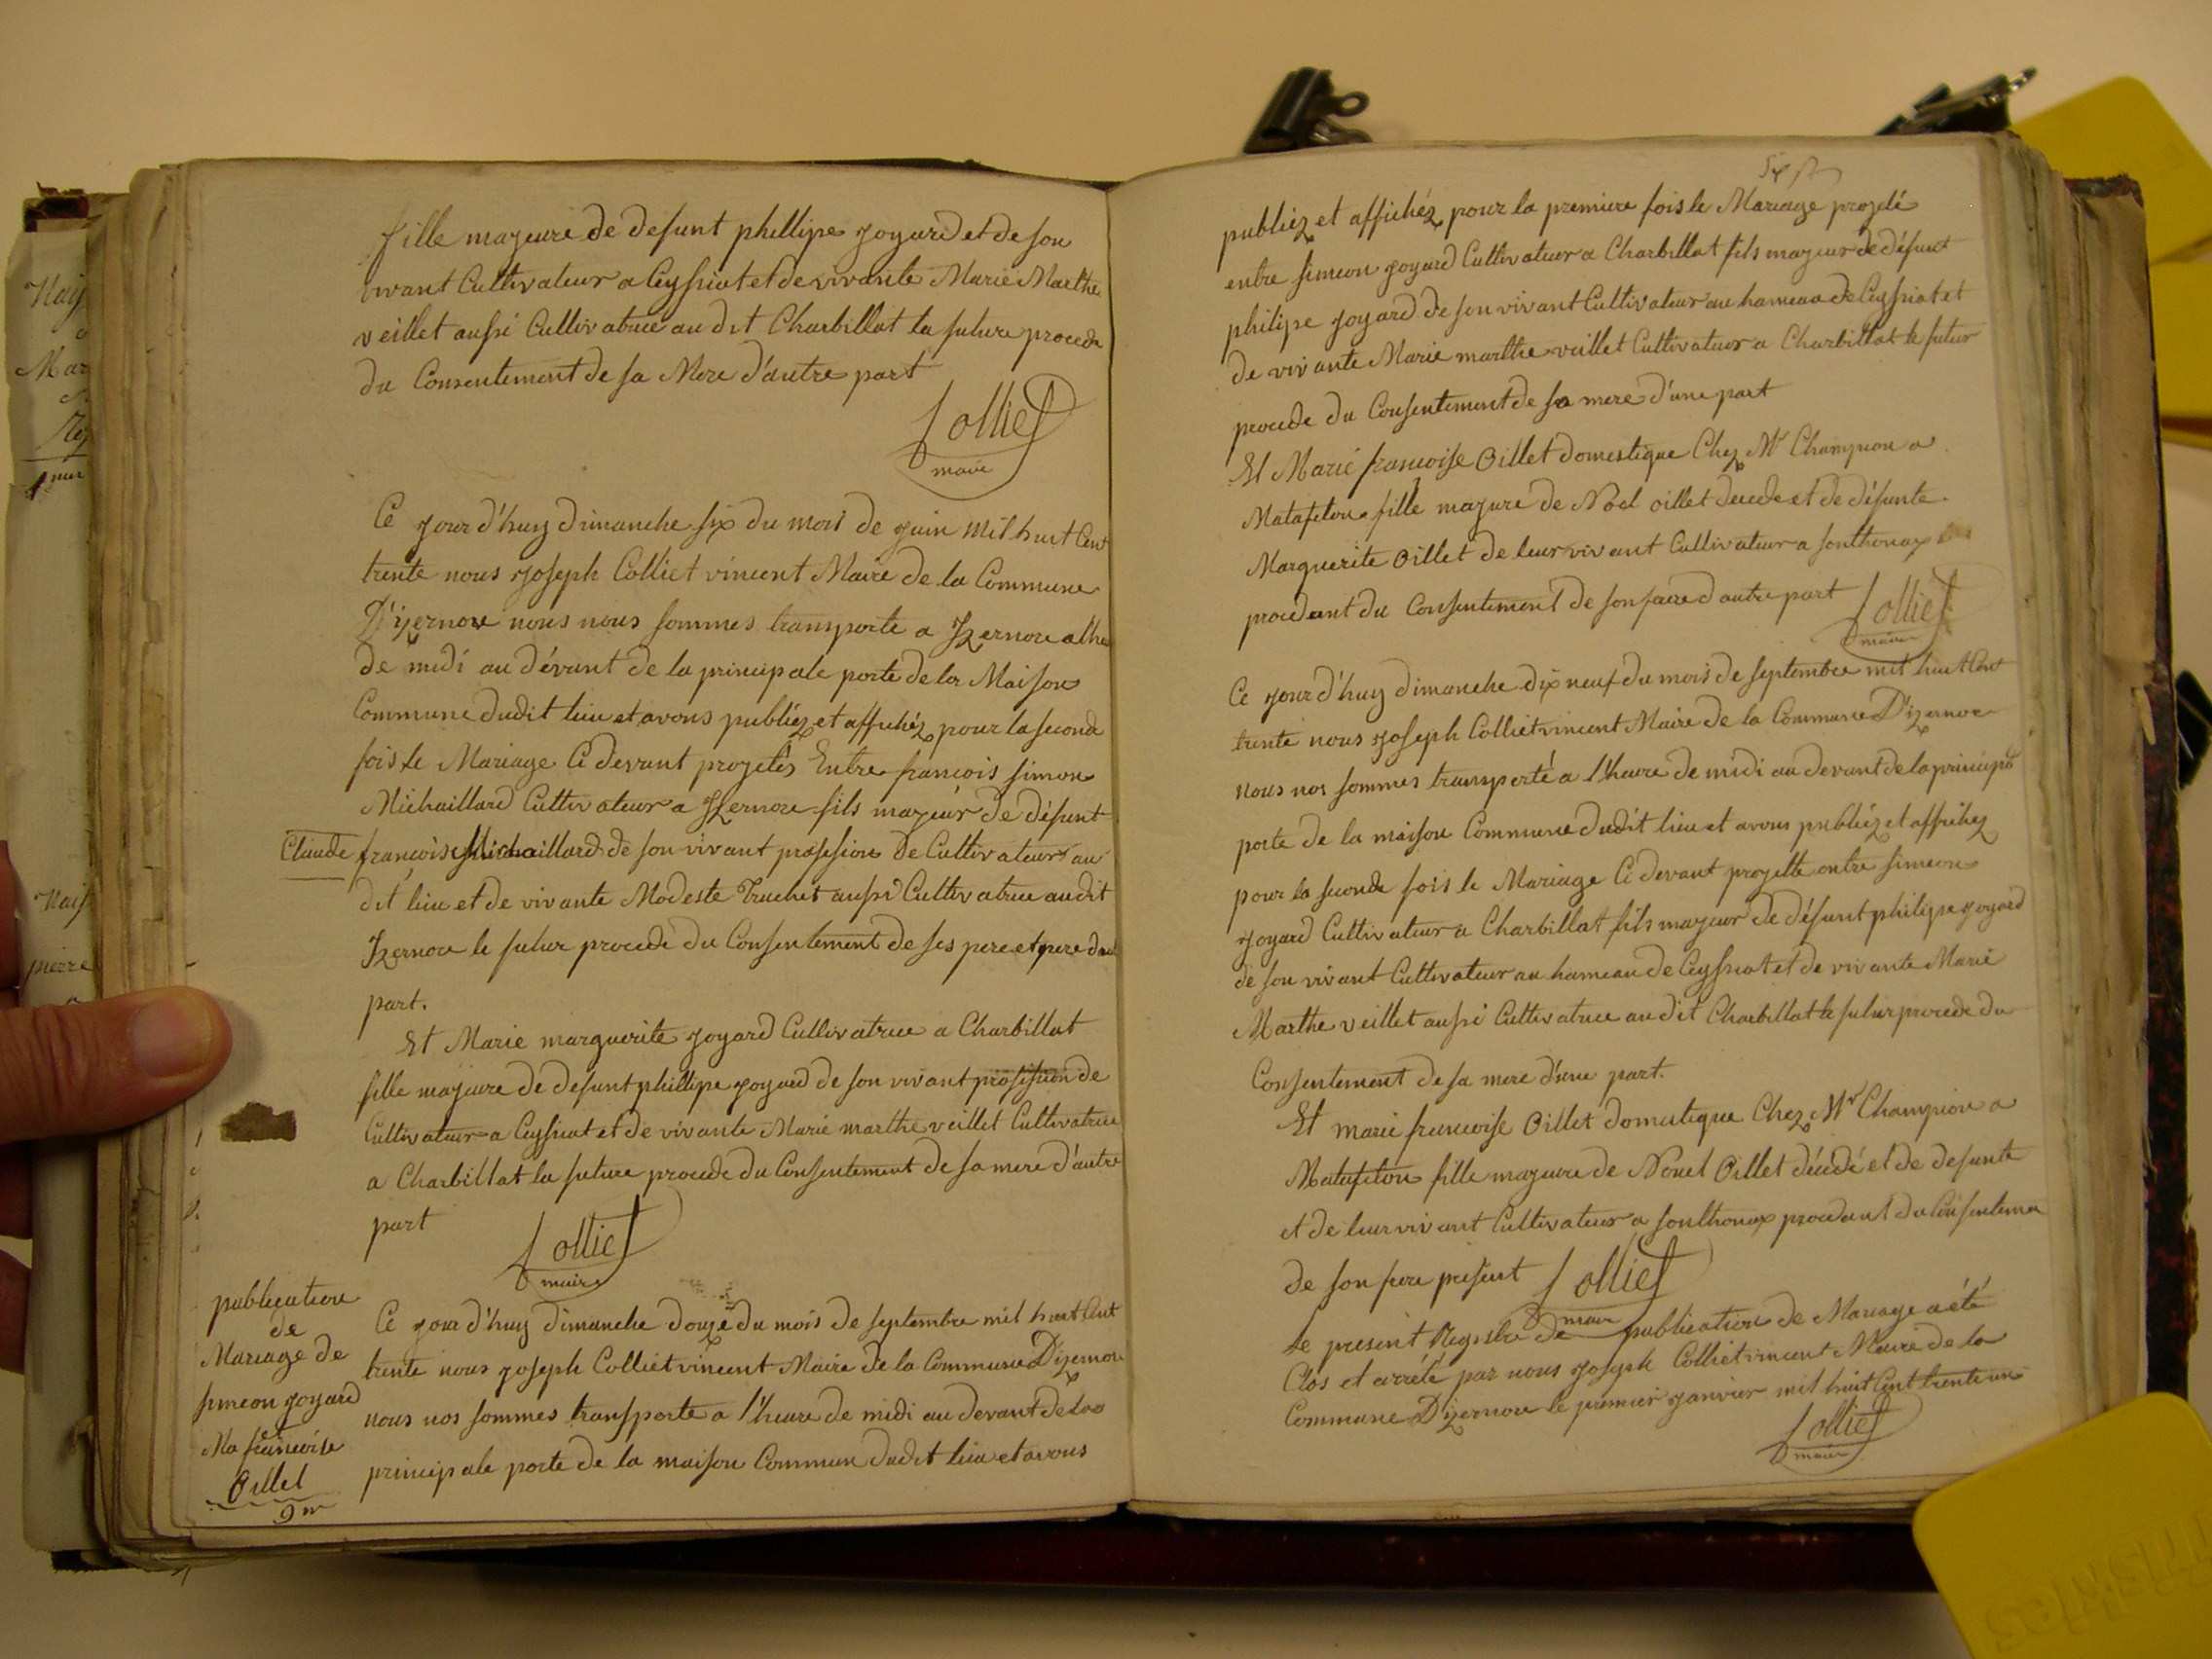 fille majeure de defunt phillipe joyard et de son
vivant Cultivateur a Ceyssiat et de vivante Marie Marthe
veillet aussi Cultivatrice au dit Charbillat la future procede
du Consentement de sa Mere d'autre part
Colliet
maire
Ce jour d'huy dimanche six du mois de juin mil huit Cent
trente nous joseph Colliet vincent Maire de la Commune
D'izernore nous nous sommes transporte a Izernore a lheu
de midi au dévant de la principale porte de la Maison
Commune dudit lieu et avons publiéz et affichéz pour la seconde
fois le Mariage Ci devant projetés Entre francois simon
Michaillard Cultivateur a Izernore fils majeur de défunt
Claude françois Michaillard de son vivant profession de Cultivateur au
dit lieu et de vivante Modeste Truchet aussi Cultivatrice audit
Izernore le futur procede du Consentement de ses pere et mere d'un
part.
Et Marie marguerite joyard Cultivatrice a Charbillat
fille majeure de defunt phillipe joyard de son vivant profession de
Cultivateur a Ceyssiat et de vivante Marie marthe veillet Cultivatrice
a Charbillat la future procede du Consentement de sa mere d'autre
part
Colliet
maire
publication
de
Mariage de
simeon joyard
et
Ma francoise
Oillet
Ce jour d'huy dimanche douze du mois de septembre mil huit Cent
trente nous joseph Colliet vincent Maire de la Commune D'izernore
nous nos sommes transporte a l'heure de midi au devant de la
principale porte de la maison Commun dudit lieu et avons
publiéz et affichéz pour la premiere fois le Mariage projeté
entre simeon joyard Cultivateur a Charbillat fils majeur de défunt
philipe joyard de son vivant Cultivateur au hameau de Ceyssiat et
de vivante Marie marthe veillet Cultivateur a Charbillat le futur
procede du Consentement de sa mere d'une part
Et Marie francoise Oillet domestique Chez Mr Champion a
Matafelon fille majure de Noel oillet decede et de défunte
Marguerite Oillet de leur vivant Cultivateur a sonthonax
procedant du Consentement de son frere d'autre part
Colliet
maire
Ce jour d'huy dimanche dix neuf du mois de septembre mil huit Cent
trente nous joseph Colliet vincent Maire de la Commune D'izernore
nous nos sommes transporté a l'heure de midi au devant de la principa
porte de la maison Commune dudit lieu et avons publiéz et affichez
pour la seconde fois le Mariage Ci devant projette entre simeon
joyard Cultivateur a Charbillat fils majeur de défunt philipe joyard
de son vivant Cultivateur au hameau de Ceyssiat et de vivante Marie
Marthe veillet aussi Cultivatrice au dit Charbillat le futur procede du
Consentement de sa mere d'une part.
Et marie francoise Oillet domestique Chez Mr Champion a
Matafelon fille majeure de Nouel Oillet décedé et de defunte
et de leur vivant Cultivateur a sonthonax procedant du Consenteme
de son frere present
Colliet
maire
Le present Registre de publication de Mariage a été
Clos et arrété par nous joseph Colliet vincent Maire de la
Commune D'izernore le premier janvier mil huit Cent trente un
Colliet
maire